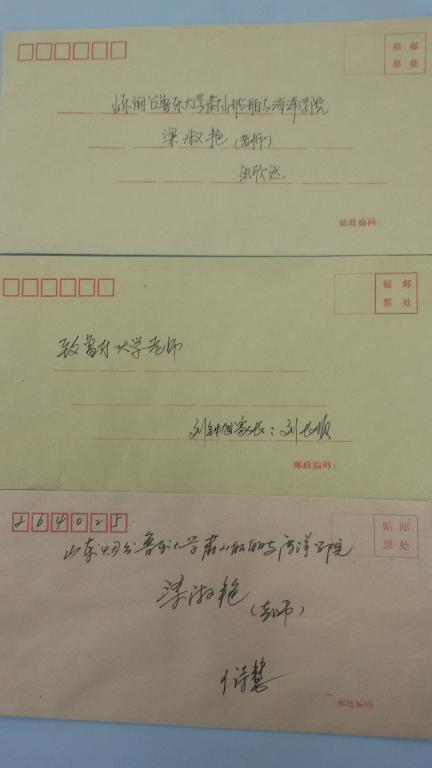 贴 邮
票 处
山东烟台鲁东大学蔚山船舶与海洋学院
梁淑艳（老师）
张欣远
邮政编码：
贴 邮
票 处
致鲁东大学老师
家长：刘长顺
邮政编码：
264025
贴 邮
票 处
山东烟台鲁东大学蔚山船舶与海洋学院
梁淑艳
（老师）
诗慧
邮政编码